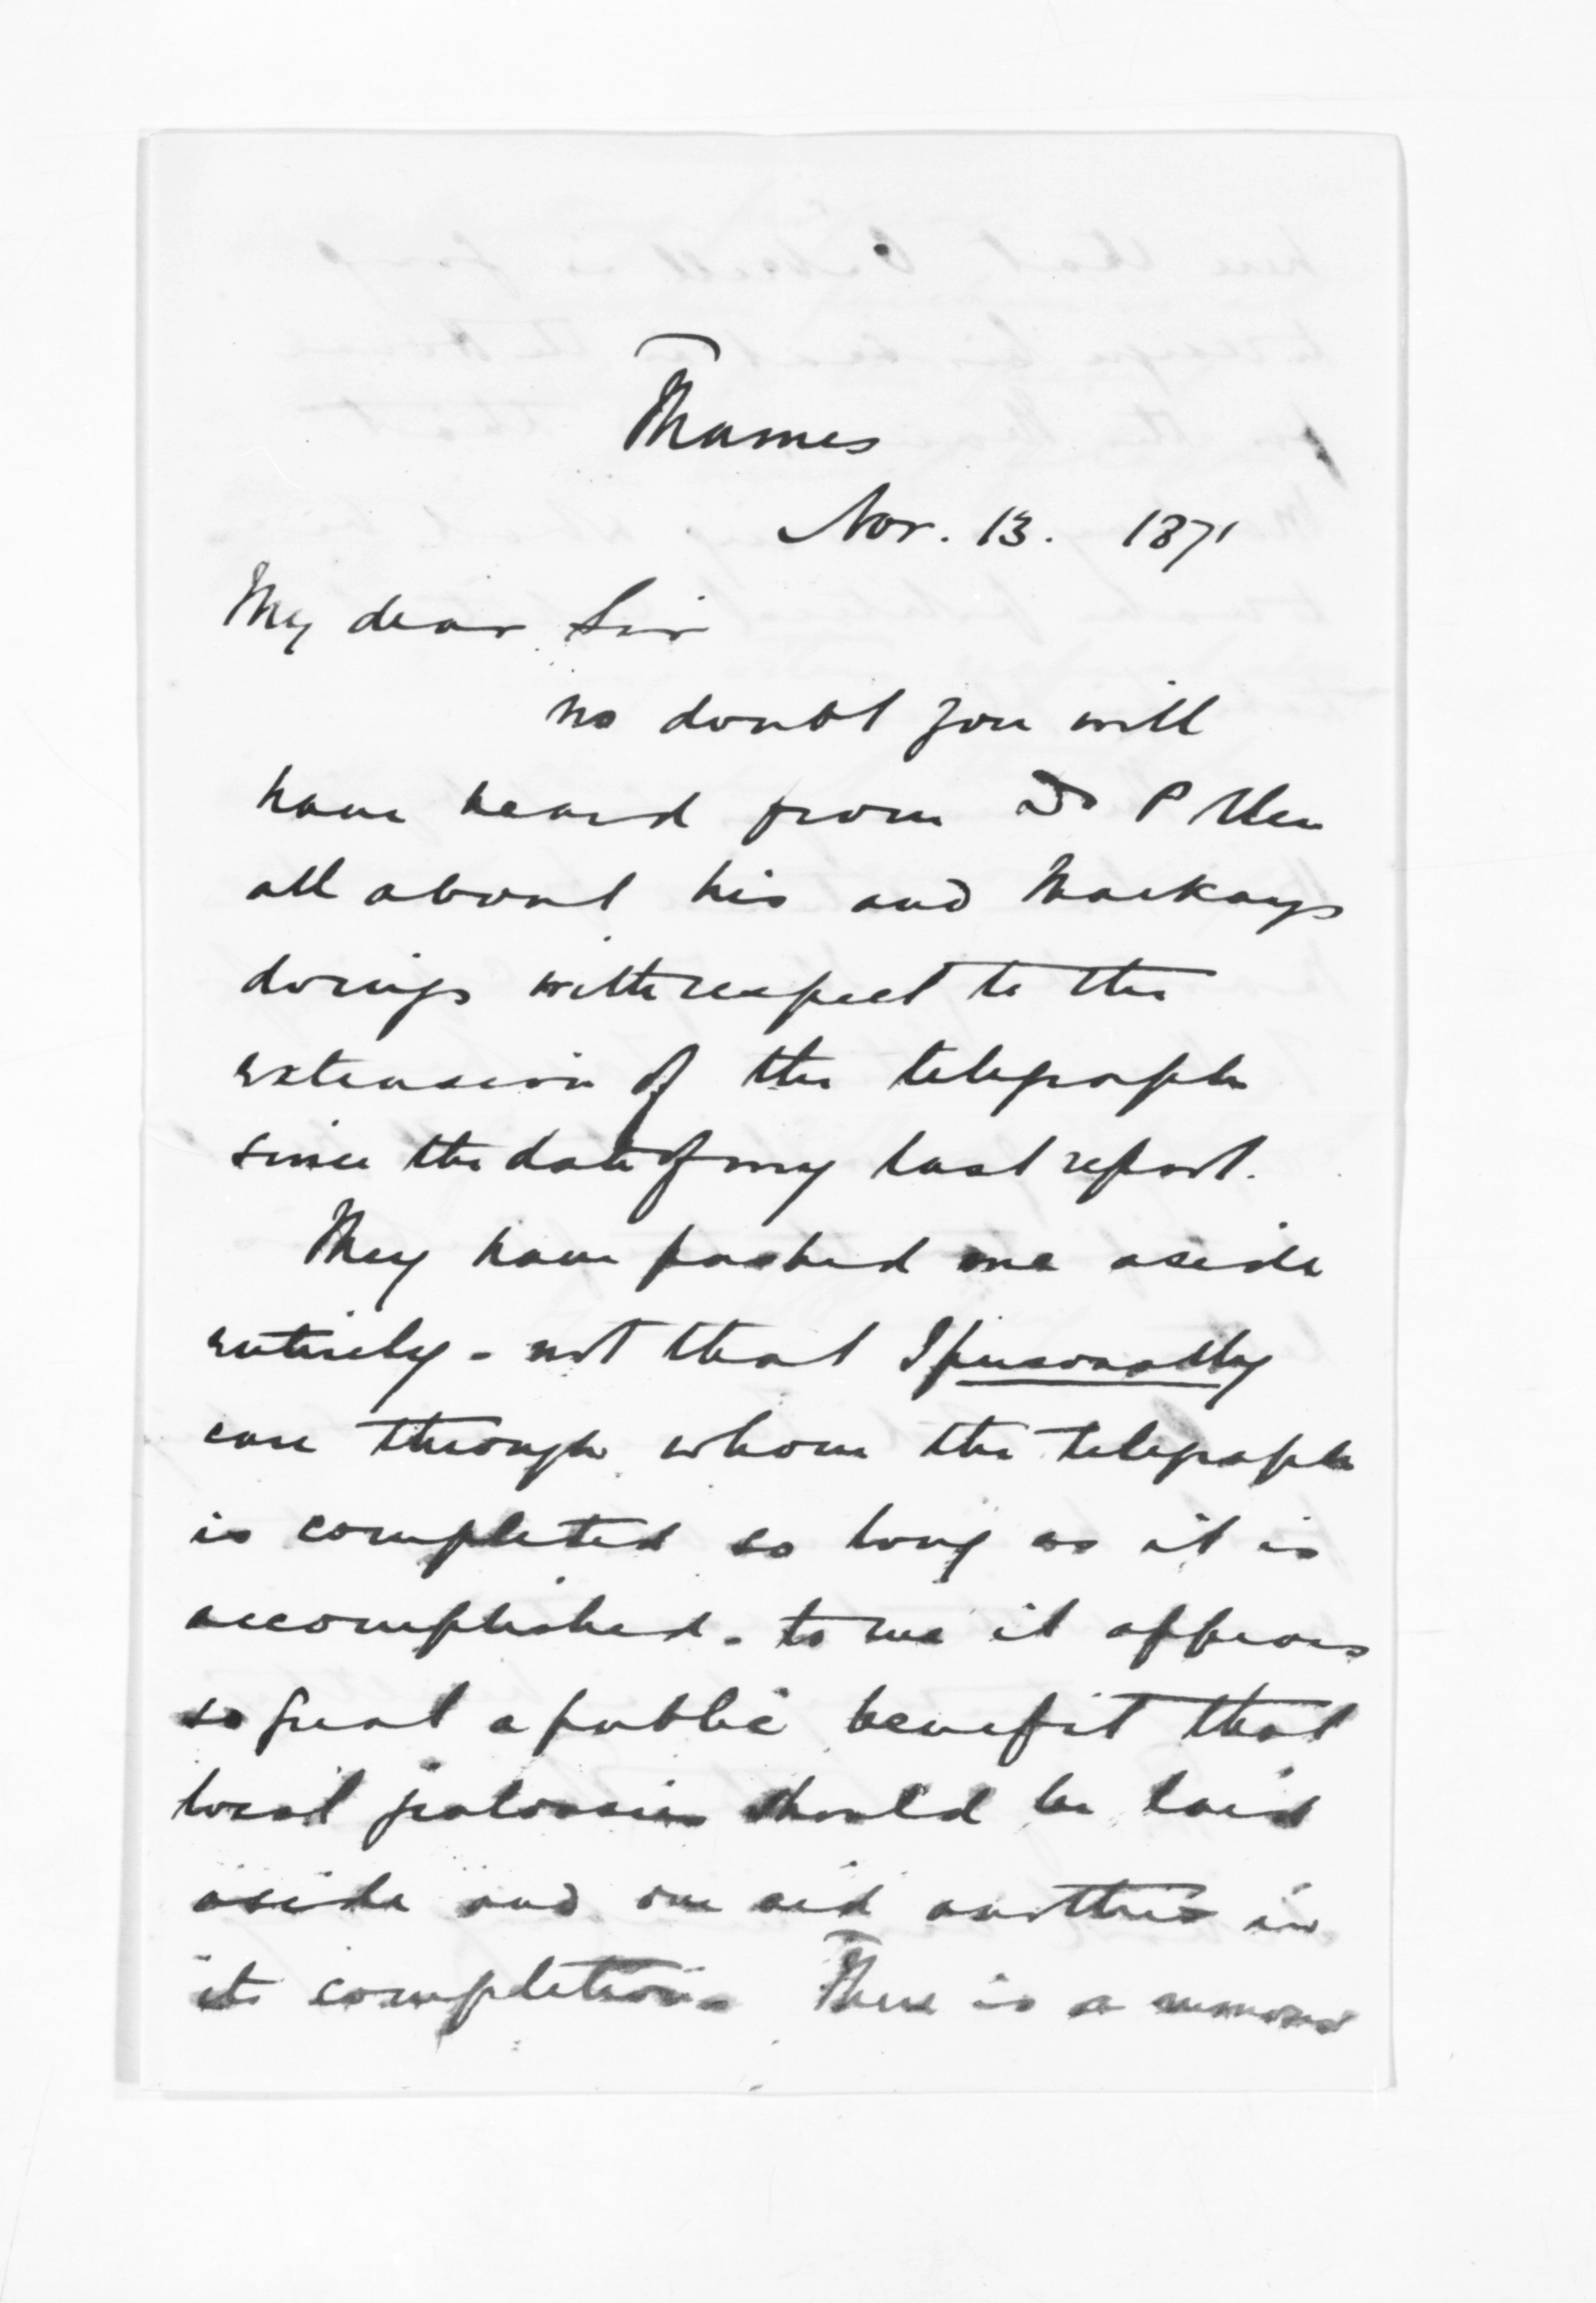 Thames
Nov. 13. 1871
My dear Sir
no doubt you will
have heard from Dr Pollen
all about his and Mackays
doings with respect to the
extension of the telegraph
since the date of my last report.
They have pushed me aside
entirely - not that I personally
care through whom the telegraph
is completed so long as it is
accomplished - to me it appears
so great a public benefit that
local jealousies should be laid
aside and one aid another in
its completion. There is a rumour